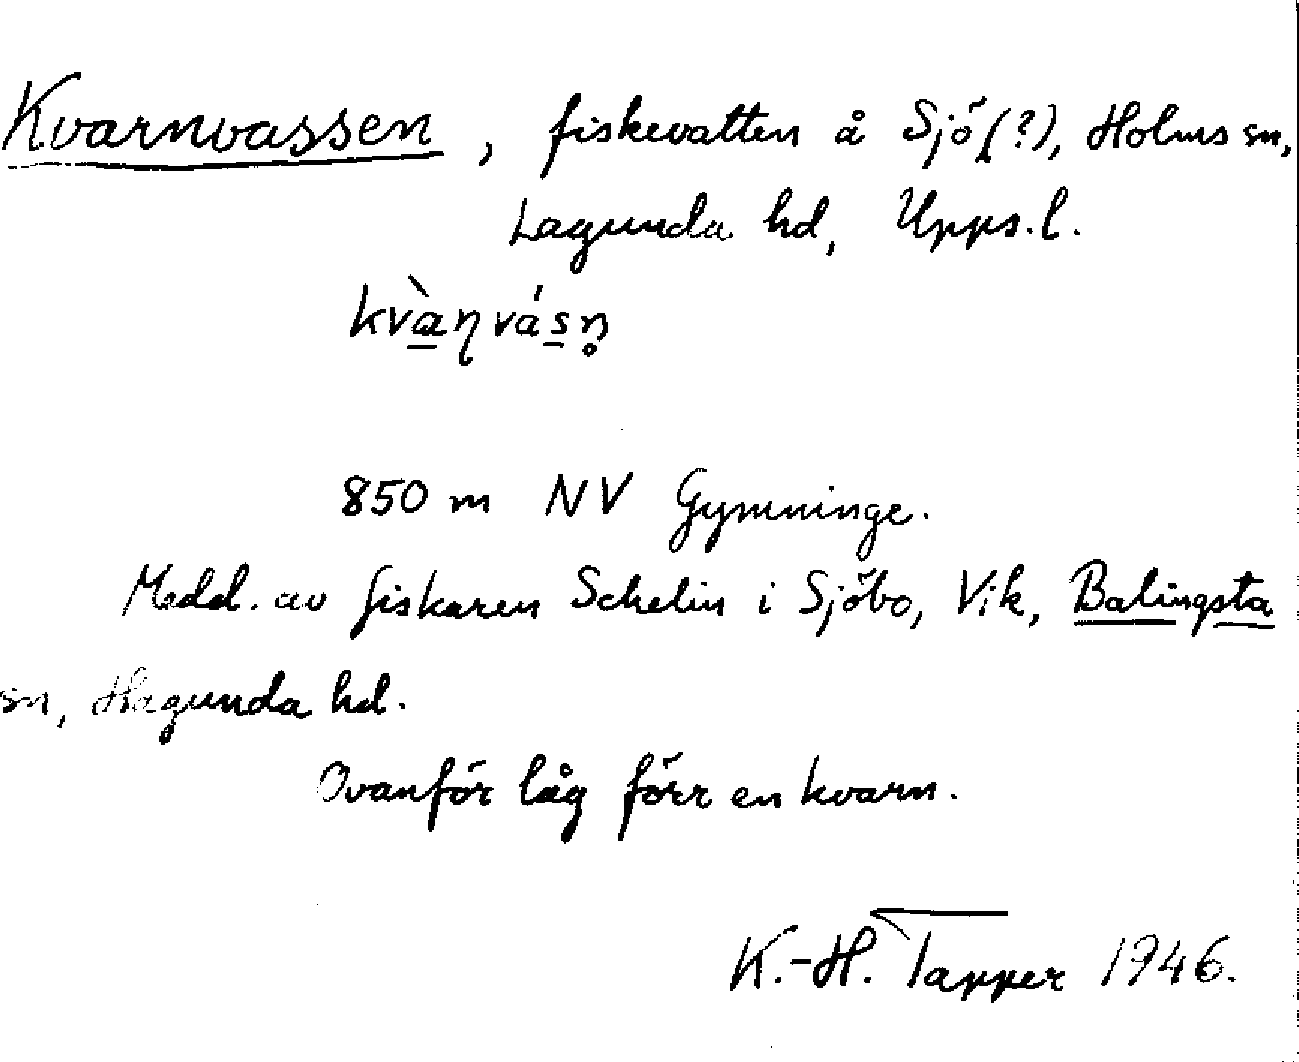 Kvarnvassen, fiskevatten å Sjö(?), Holms sn,
Lagunda hd, Upps. l.
kvàɳvásn̥
850 m NV Gymninge.
Medd. av fiskaren Schelin i Sjöbo, Vik, Balingsta
sn, Hagunda hd.
Ovanför låg förr en kvarn.
K.-H. Tapper 1946.